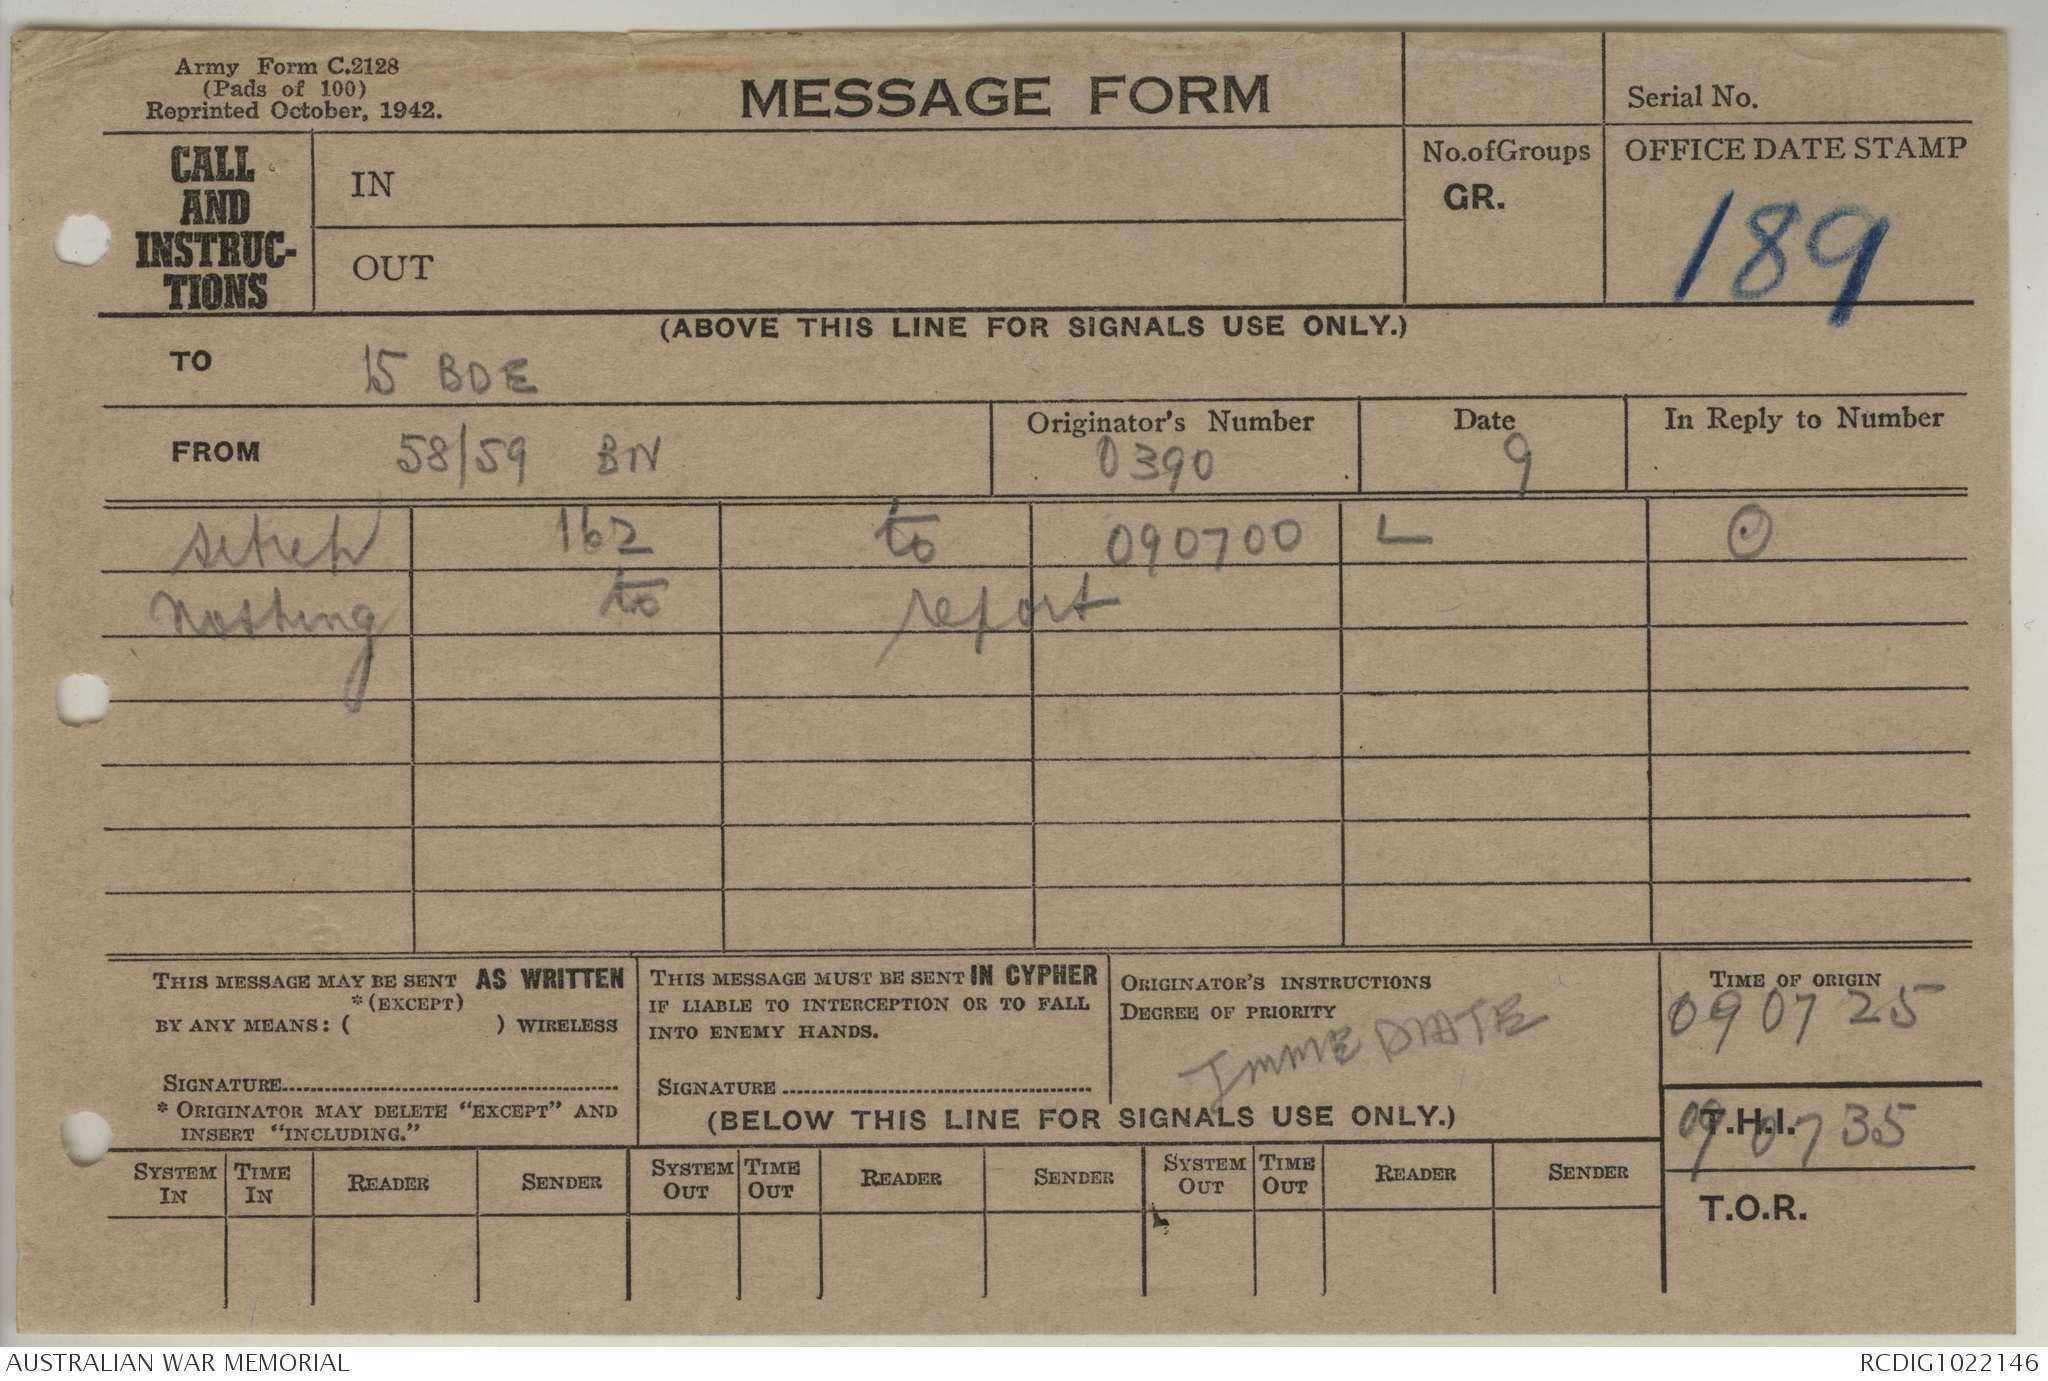 Army Form C.2128
(Pads of 100)
Reprinted October, 1942.
MESSAGE FORM
Serial No.
CALL
AND
INSTRUC-
TIONS
IN
OUT
No.of Groups
GR.
OFFICE DATE STAMP
189
(ABOVE THIS LINE FOR SIGNALS USE ONLY.)
TO 15 BDE
FROM 58/59 BN
Originator's Number
0390
Date
9
In Reply to Number
sitrep 162 to 090700 L ⊙
nothing to report
THIS MESSAGE MAY BE SENT AS WRITTEN
*(EXCEPT)
BY ANY MEANS: ( ) WIRELESS
SIGNATURE
* ORIGINATOR MAY DELETE "EXCEPT" AND
INSERT "INCLUDING."
THIS MESSAGE MUST BE SENT IN CYPHER
IF LIABLE TO INTERCEPTION OR TO FALL
INTO ENEMY HANDS.
SIGNATURE
ORIGINATOR'S INSTRUCTIONS
DEGREE OF PRIORITY
IMMEDIATE
TIME OF ORIGIN
090725
(BELOW THIS LINE FOR SIGNALS USE ONLY.)
T.H.I.
090735
T.O.R.
SYSTEM IN
TIME IN
READER
SENDER
SYSTEM OUT
TIME OUT
READER
SENDER
SYSTEM OUT
TIME OUT
READER
SENDER
AUSTRALIAN WAR MEMORIAL
RCDIG1022146